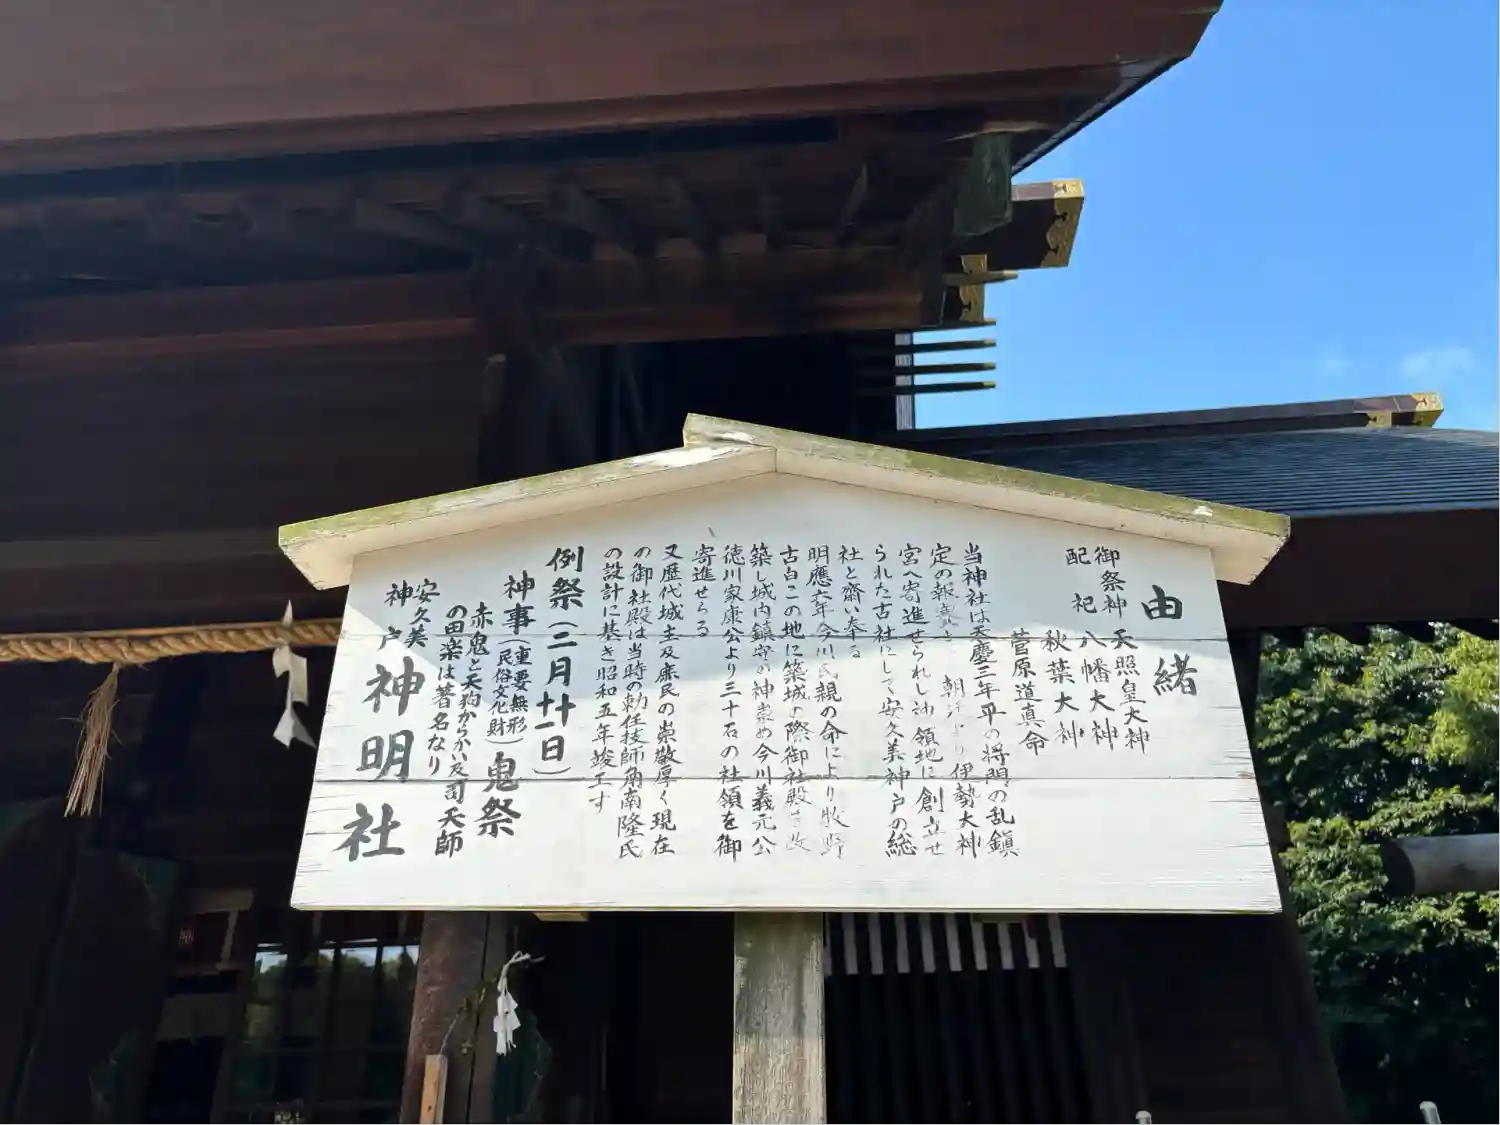 由緒
御祭神 天照皇大神
配祀 八幡大神
秋葉大神
菅原道真命
当神社は天慶三年平の将門の乱鎮
定の報賽と 朝廷より伊勢大神
宮へ寄進せられし神領地に創立せ
られた古社にして安久美神戸の総
社と齋い奉る
明應六年今川氏親の命により牧野
古白この地に築城の際御社殿を改
築し城内鎮守の神と崇め今川義元公
徳川家康公より三十石の社領を御
寄進せらる
又歴代城主及庶民の崇敬厚く現在
の御社殿は当時の勅任技師角南隆氏
の設計に基き昭和五年竣工す
例祭(二月十一日)
神事(重要無形民俗文化財)鬼祭
赤鬼と天狗からかい及司天師
の田楽は著名なり
安久美神戸神明社